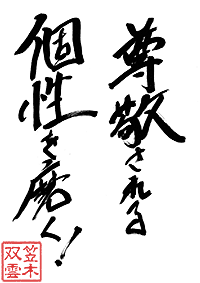 尊敬される
個性を磨く!
笠木
双雲